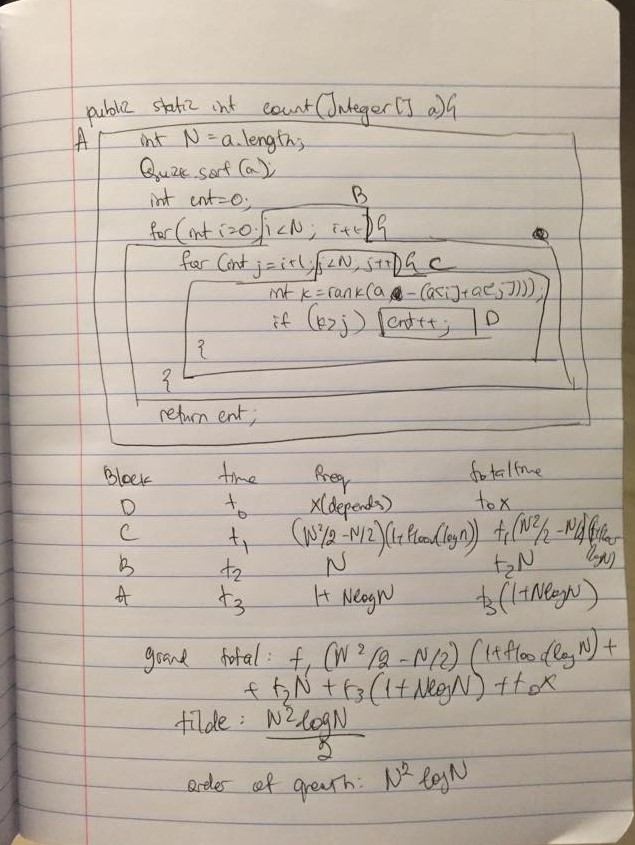 public static int count(Integer[] a){
A int N = a.length;
Quick.sort(a);
int cnt=0;
B
for(int i=0; i<N; i++){
for (int j=i+1; j<N; j++){ C
int k=rank(a, -(a[i]+a[j]));
if (k>j) cnt++; D
}
}
return cnt;
Block time freq total time
D t0 x(depends) t0 x
C t1 (N²/2 - N/2)(1+floor(logn)) t1(N²/2 - N/2)(1+floor logN)
B t2 N t2N
A t3 1+ NlogN t3(1+NlogN)
grand total: t1 (N²/2 - N/2) (1+floor(logN) +
+ t2N + t3(1+NlogN) + t0x
tilde: N²logN
2
order of growth: N² logN